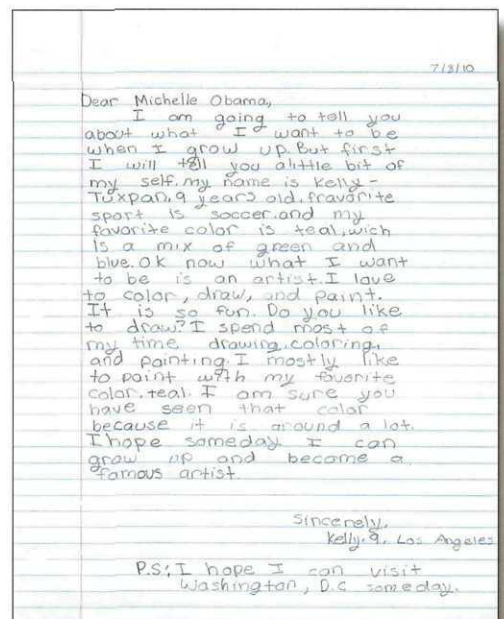 7/8/10
Dear Michelle Obama,
I am going to tell you
about what I want to be
when I grow up. But first
I will tell you alittle bit of
my self. my name is Kelly-
Tuxpan, 9 years old. fravorite
sport is soccer. and my
favorite color is teal, wich
is a mix of green and
blue. Ok now what I want
to be is an artist. I love
to color, draw, and paint.
It is so fun. Do you like
to draw? I spend most of
my time drawing, coloring,
and painting. I mostly like
to paint with my favorite
color. teal. I am sure you
have seen that color
because it is around a lot.
I hope someday I can
grow up and become a
famous artist.
Sincerely,
Kelly, 9, Los Angeles
P.S: I hope I can visit
Washington, D.C someday.